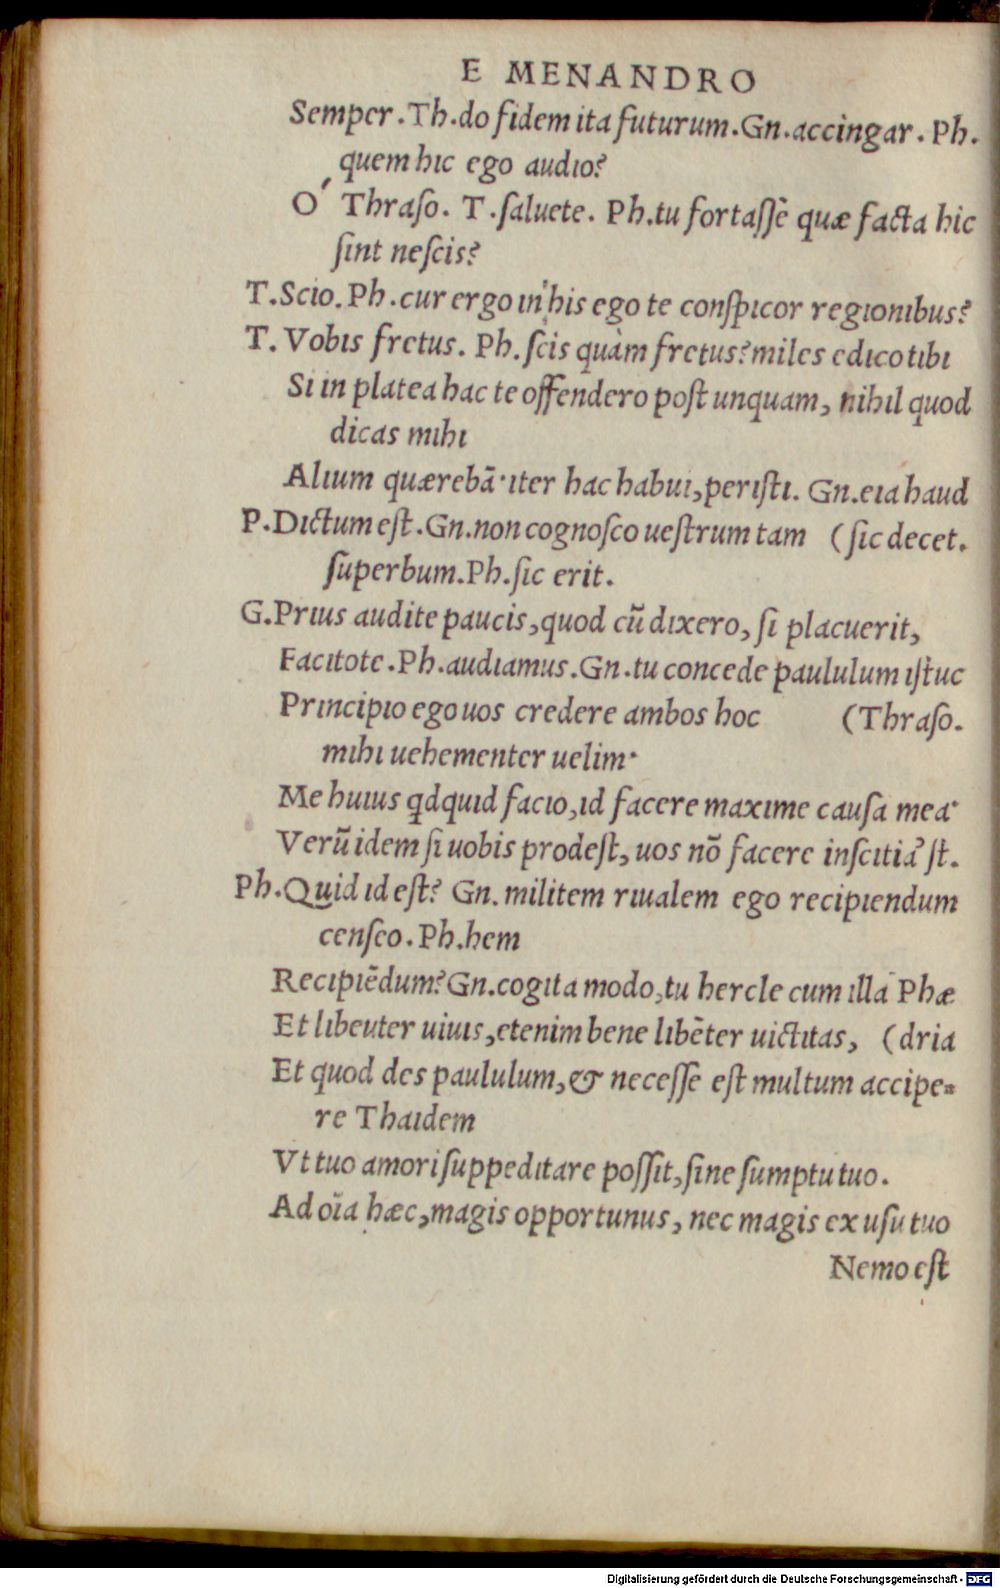 E MENANDRO
Semper.Th.do fidem ita futurum.Gn.accingar. Ph.
quem hic ego audio?
O´ Thraſo. T.ſaluete. Ph.tu fortaſſe quæ facta hic
ſint neſcis?
T.Scio.Ph.cur ergo in his ego te conſpicor regionibus?
T. Vobis fretus. Ph.ſcis quàm fretus?miles edico tibi
Si in platea hac te offendero poſt unquam, nihil quod
dicas mihi
Alium quærebā·iter hac habui,periſti. Gn.eia haud
P.Dictum eſt.Gn.non cognoſco ueſtrum tam (ſic decet.
ſuperbum.Ph.ſic erit.
G.Prius audite paucis,quod cū dixero, ſi placuerit,
Facitote.Ph.audiamus.Gn.tu concede paululum iſtuc
Principio ego uos credere ambos hoc (Thraſo.
mihi uehementer uelim·
Me huius qdquid facio,id facere maxime cauſa mea·
Verū idem ſi uobis prodeſt, uos nō facere inſcitia'ſt.
Ph.Quid id eſt? Gn. militem riualem ego recipiendum
cenſeo.Ph.hem
Recipiēdum?Gn.cogita modo,tu hercle cum illa Phæ
Et libeuter uiuis,etenim bene libēter uictitas, (dria
Et quod des paululum,& neceſſe eſt multum accipe=
re Thaidem
Vt tuo amori ſuppeditare poſſit,ſine ſumptu tuo.
Ad oīa hæc,magis opportunus, nec magis ex uſu tuo
Nemo eſt
Digitalisierung gefördert durch die Deutsche Forschungsgemeinschaft - DFG